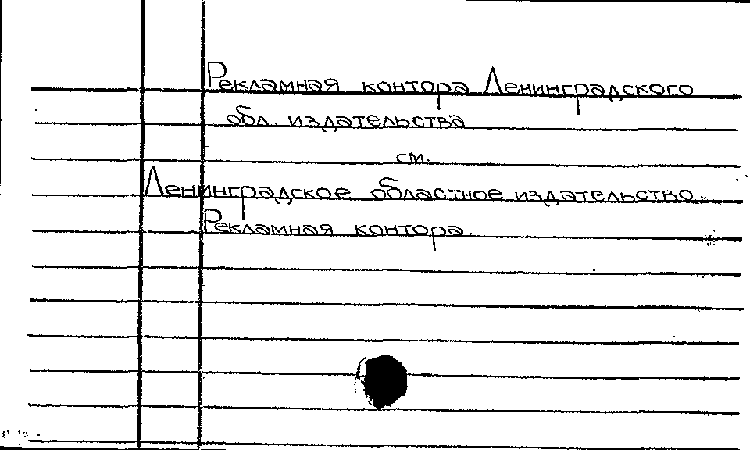 Рекламная контора Ленинградского
обл. издательства
см.
Ленинградское областное издательство.
Рекламная контора.